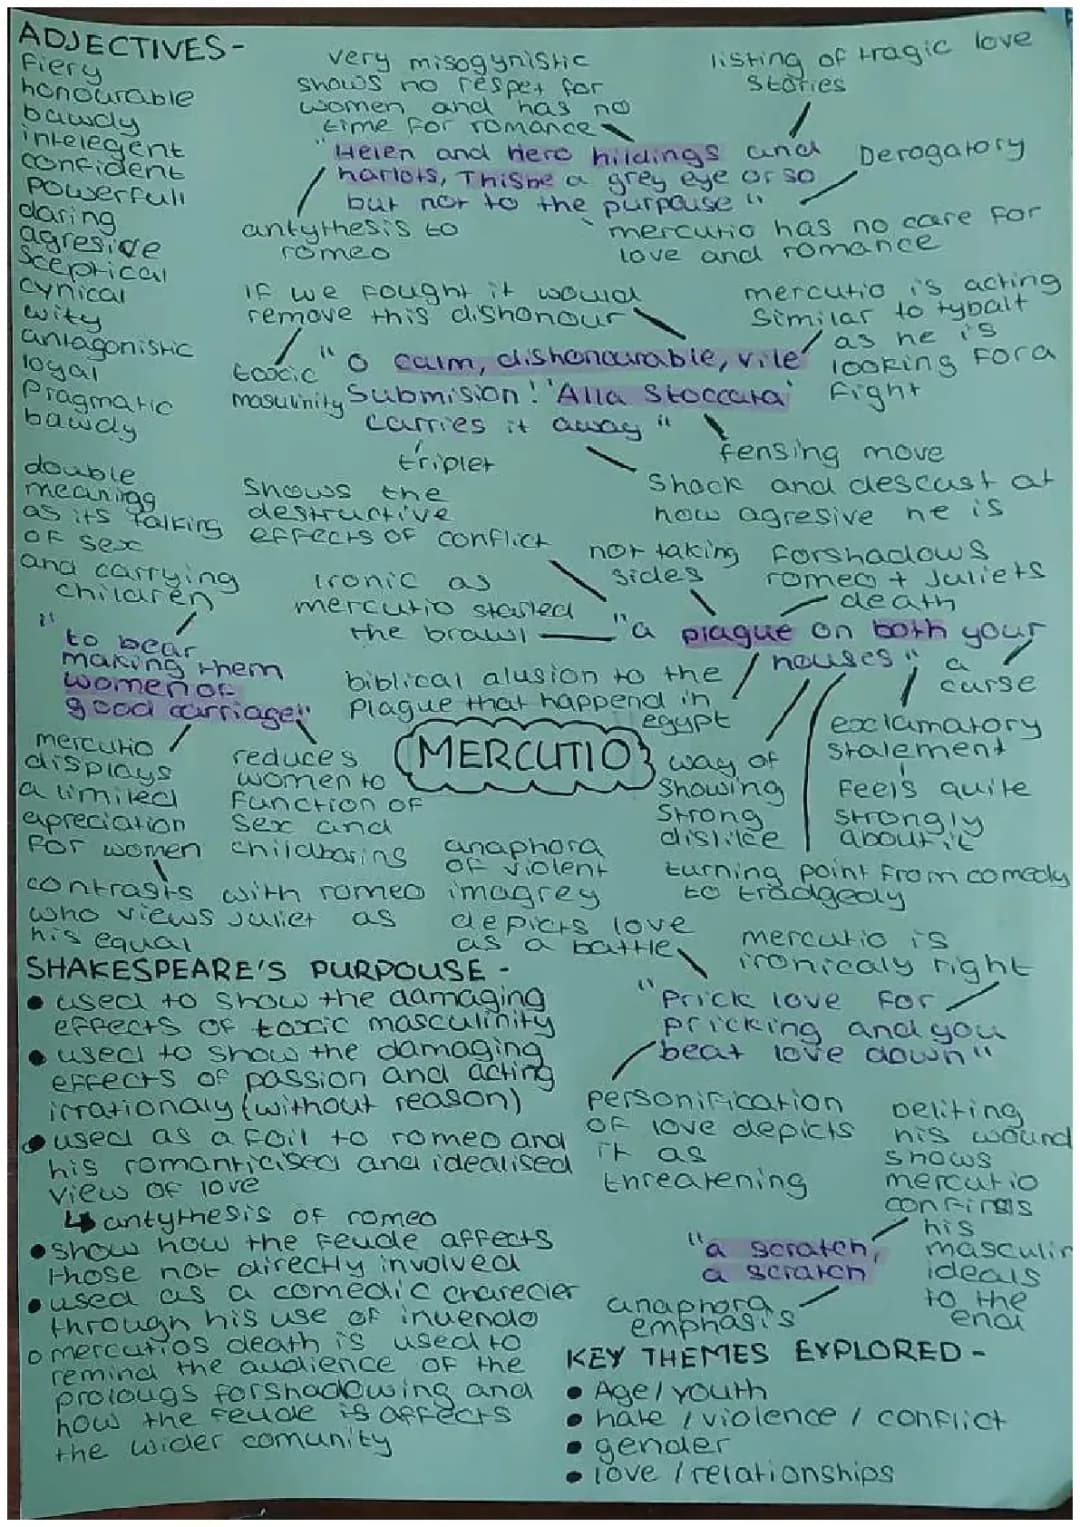 ADJECTIVES -
fiery
honourable
bawdy
intelegent
confident
powerfull
daring
agresive
sceptical
cynical
wity
antagonistic
loyal
Pragmatic
bawdy
very misogynistic
shows no respet for
women and has no
time for romance
listing of tragic love
stories
"Helen and Hero hildings and
harlots, Thisbe a grey eye or so
but not to the purpouse"
Derogatory
antythesis to
romeo
mercutio has no care for
love and romance
if we fought it would
remove this dishonour
mercutio is acting
similar to tybalt
as he is
looking for a
fight
toxic
masulinity
"O calm, dishonourable, vile
submision! 'Alla stoccata'
carries it away"
triplet
fensing move
shock and descust at
how agresive he is
double
meaning
as its talking
of sex
and carrying
children
shows the
destructive
effects of conflict
not taking
sides
forshadows
romeo + Juliets
death
ironic as
mercutio started
the brawl
"a plague on both your
houses"
a
curse
"to bear
making them
women of
good carriage"
biblical alusion to the
plague that happend in
egypt
MERCUTIO
mercutio
displays
a limited
apreciation
for women
reduces
women to
function of
sex and
childbaring
way of
showing
strong
dislike
exclamatory
statement
feels quite
strongly
about it
contrasts with romeo
who views Juliet as
his equal
anaphora
of violent
imagrey
depicts love
as a battle
turning point from comedy
to tradgedy
mercutio is
ironicaly right
"Prick love for
pricking and you
beat love down"
SHAKESPEARE'S PURPOUSE -
• used to show the damaging
effects of toxic masculinity
• used to show the damaging
effects of passion and acting
irrationaly (without reason)
• used as a foil to romeo and
his romanticised and idealised
view of love
↳ antythesis of romeo
• show how the feude affects
those not directly involved
• used as a comedic charecter
through his use of inuendo
• mercutios death is used to
remind the audience of the
prolougs forshadowing and
how the feude is affects
the wider comunity
personification
of love depicts
it as
threatening
beliting
his wound
shows
mercutio
confirms
his
masculin
ideals
to the
end
"a scratch,
a scratch'
anaphora
emphasis
KEY THEMES EXPLORED -
• Age / youth
• hate / violence / conflict
• gender
• love / relationships